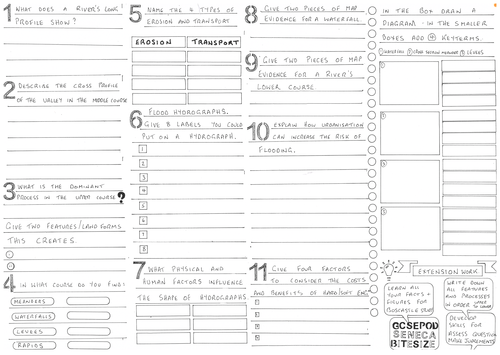 1 WHAT DOES A RIVER'S LONG
PROFILE SHOW?
2 DESCRIBE THE CROSS PROFILE
OF THE VALLEY IN THE MIDDLE COURSE
3 WHAT IS THE DOMINANT
PROCESS IN THE UPPER COURSE?
GIVE TWO FEATURES/LANDFORMS
THIS CREATES.
4 IN WHAT COURSE DO YOU FIND:
MEANDERS
WATERFALLS
LEVEES
RAPIDS
5 NAME THE 4 TYPES OF
EROSION AND TRANSPORT
EROSION TRANSPORT
6 FLOOD HYDROGRAPHS.
GIVE 8 LABELS YOU COULD
PUT ON A HYDROGRAPH.
1
2
3
4
5
6
7
8
7 WHAT PHYSICAL AND
HUMAN FACTORS INFLUENCE
THE SHAPE OF HYDROGRAPHS
8 GIVE TWO PIECES OF MAP
EVIDENCE FOR A WATERFALL.
9 GIVE TWO PIECES OF MAP
EVIDENCE FOR A RIVER'S
LOWER COURSE
10 EXPLAIN HOW URBANISATION
CAN INCREASE THE RISK OF
FLOODING.
11 GIVE FOUR FACTORS
TO CONSIDER THE COSTS
AND BENEFITS OF HARD/SOFT ENG
IN THE BOX DRAW A
DIAGRAM - IN THE SMALLER
BOXES ADD KEYTERMS.
EXTENSION WORK
LEARN ALL
YOUR FACTS +
FIGURES FOR
BOSCASTLE
GCSEPOD
SENECA
BITESIZE
WRITE DOWN
ALL FEATURES
AND PROCESSES
IN ORDER
DEVELOP
SKILLS FOR
ASSESS QUESTION
MAKE JUDGEMENTS